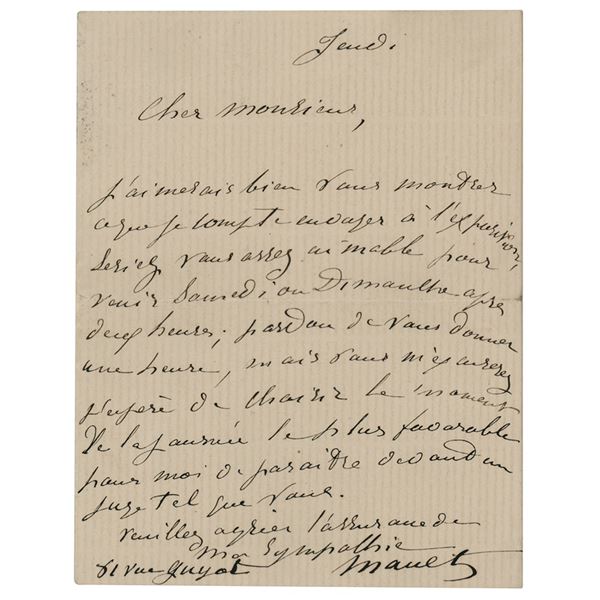 Jeudi
Cher monsieur,
j'aimerais bien vous montrer
ce que je compte envoyer à l'exposition,
Seriez vous assez aimable pour
venir Samedi ou Dimanche après
deux heures; pardon de vous donner
une heure, mais vous m'excuserez
j'espère de choisir le moment
de la journée le plus favorable
pour moi de paraitre devant un
juge tel que vous.
veuillez agréer l'assurance de
ma Sympathie
81 rue Guyot Manet